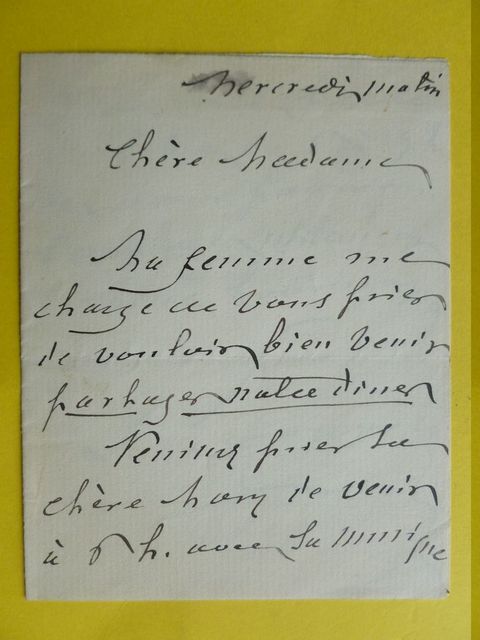 Mercredi matin
Chère Madame
Ma femme me
charge de vous prier
de vouloir bien venir
partager notre dîner
prier la
chère Mary de venir
à 6 h. avec sa musique